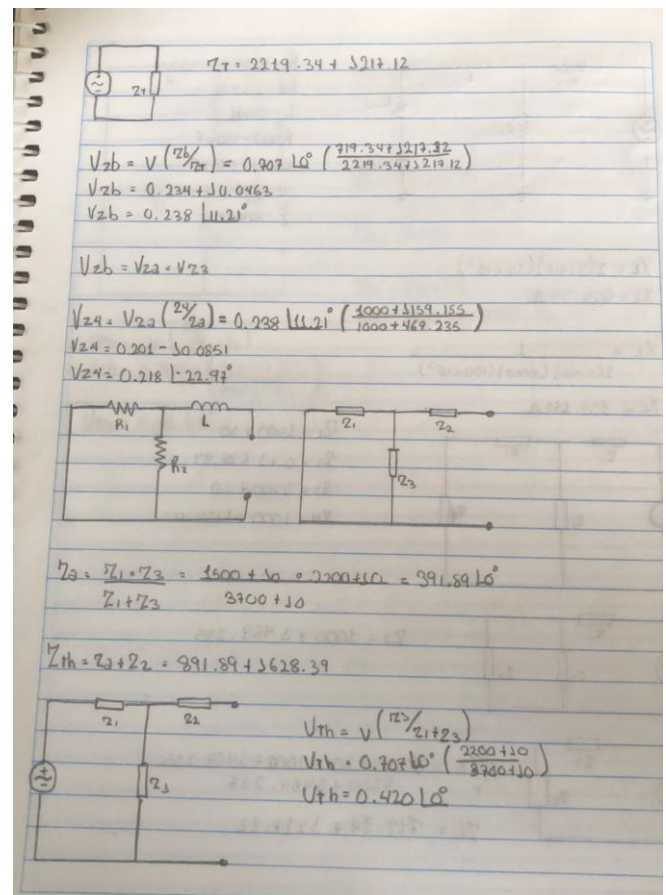 ZT
ZT = 2219.34 + J217.12
Vzb = V (Zb/ZT) = 0.707 L0° (719.34+J217.12 / 2219.34+J217.12)
Vzb = 0.234 + J0.0463
Vzb = 0.238 L11.21°
Vzb = Vza = Vz3
Vz4 = Vza (Z4/Za) = 0.238 L11.21° (1000+J159.155 / 1000+469.235)
Vz4 = 0.201 - J0.0851
Vz4 = 0.218 L-22.97°
R1 L Z1 Z2
R2 Z3
Za = Z1 • Z3 / Z1 + Z3 = 1500 + J0 • 2200+J0 / 3700 + J0 = 391.89 L0°
Zth = Za + Z2 = 891.89 + J628.39
Z1 Z2
Z3
VTh = V (Z3/Z1+Z3)
VTh = 0.707 L0° (2200+J0 / 3700+J0)
VTh = 0.420 L0°